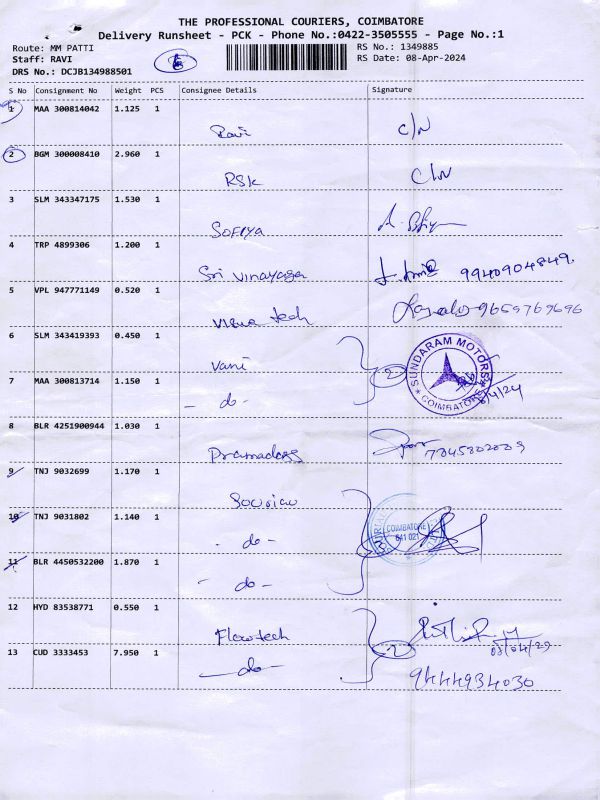 THE PROFESSIONAL COURIERS, COIMBATORE
Delivery Runsheet - PCK - Phone No.:0422-3505555 - Page No.:1
Route: MM PATTI
Staff: RAVI
DRS No.: DCJB134988501
RS No.: 1349885
RS Date: 08-Apr-2024
S No Consignment No Weight PCS Consignee Details Signature
1 MAA 300814042 1.125 1
Ravi C/N
2 BGM 300008410 2.960 1
RSK C/N
3 SLM 343347175 1.530 1
SOFIYA
4 TRP 4899306 1.200 1
Sri vinayaga 9940904849.
5 VPL 947771149 0.520 1
tech 9659769696
6 SLM 343419393 0.450 1
Vani
7 MAA 300813714 1.150 1
- do - 2 SUNDARAM MOTORS COIMBATORE 8/4/24
8 BLR 4251900944 1.030 1
Pramadass
9 TNJ 9032699 1.170 1
Souriau
10 TNJ 9031802 1.140 1
- do - COIMBATORE 641 021
11 BLR 4450532200 1.870 1
- do -
12 HYD 83538771 0.550 1
Flowtech
13 CUD 3333453 7.950 1
- do - 2
9444934030